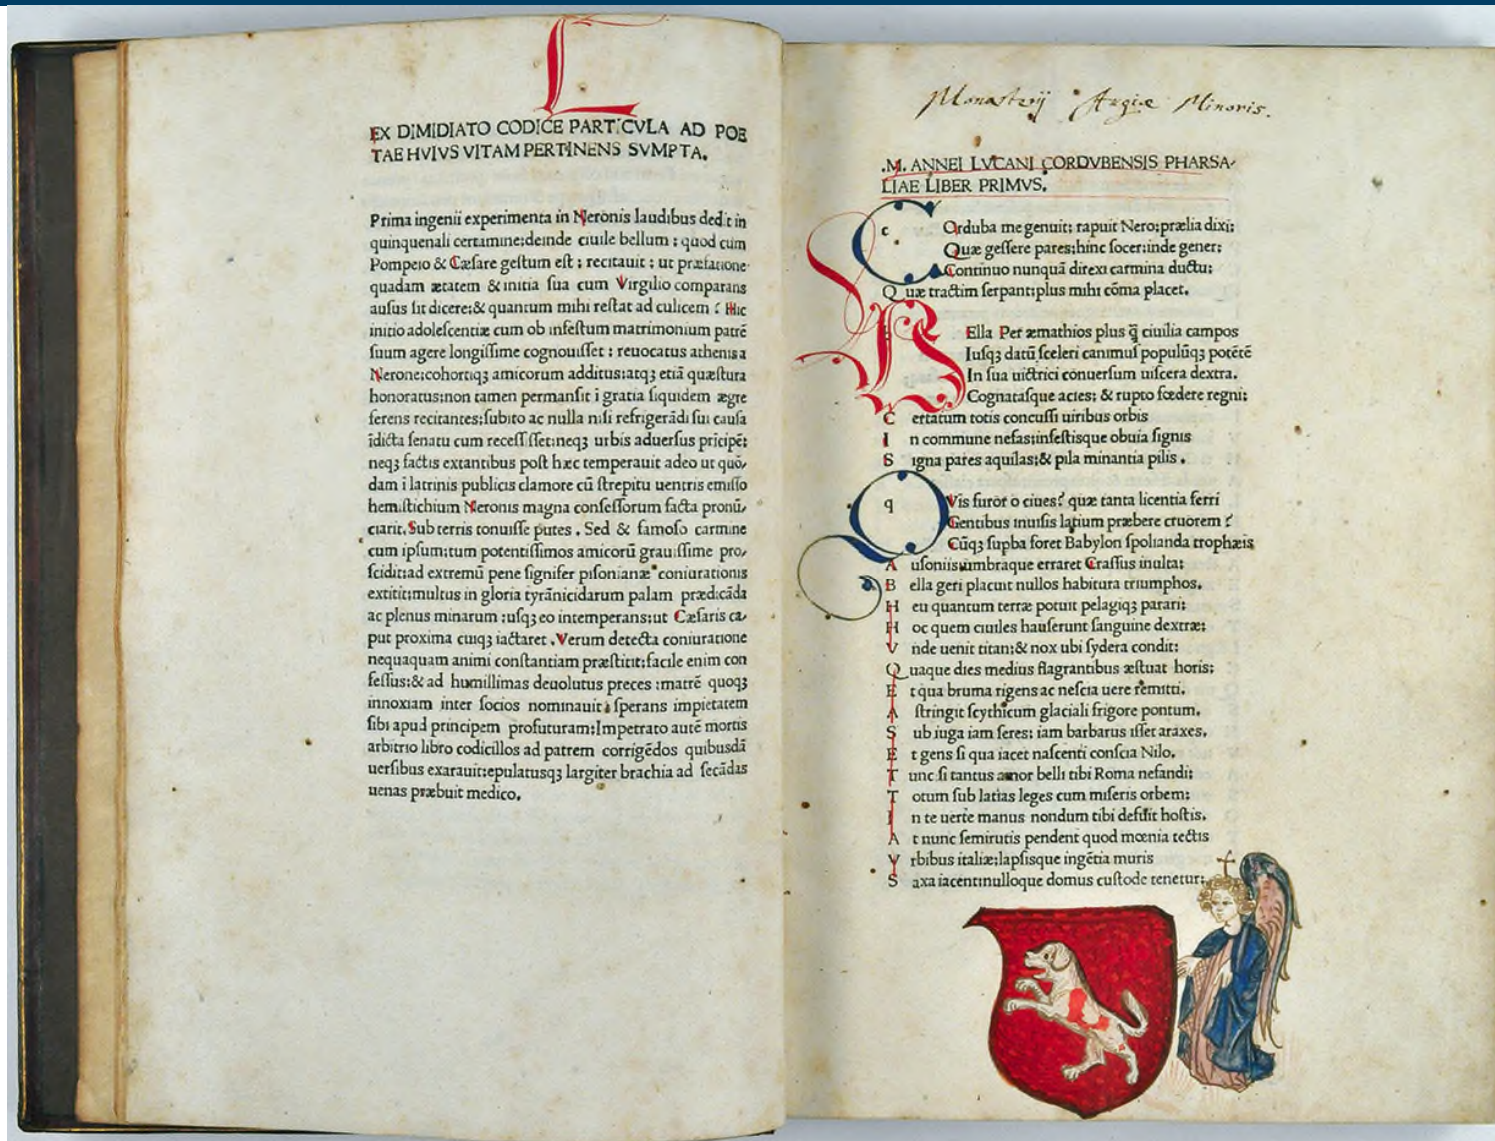 EX DIMIDIATO CODICE PARTICVLA AD POE
TAE HVIVS VITAM PERTINENS SVMPTA.
Prima ingenii experimenta in Neronis laudibus dedit in
quinquenali certamine:deinde ciuile bellum : quod cum
Pompeio & Cæſare geſtum eſt : recitauit : ut præfatione
quadam ætatem & initia ſua cum Virgilio comparans
auſus ſit dicere:& quantum mihi reſtat ad culicem ? Hic
initio adoleſcentiæ cum ob infeſtum matrimonium patrē
ſuum agere longiſſime cognouiſſet : reuocatus athenis a
Nerone:cohortiqꝫ amicorum additus:atqꝫ etiā quæſtura
honoratus:non tamen permanſit ī gratia ſiquidem ægre
ferens recitantes:ſubito ac nulla niſi refrigerādi ſui cauſa
īdicta ſenatu cum receſſiſſet:neqꝫ urbis aduerſus prīcipē:
neqꝫ factis extantibus poſt hæc temperauit adeo ut quō/
dam ī latrinis publicis clamore cū ſtrepitu uentris emiſſo
hemiſtichium Neronis magna conſeſſorum facta pronū/
ciarit. Sub terris tonuiſſe putes . Sed & famoſo carmine
cum ipſum:tum potentiſſimos amicorū grauiſſime pro/
ſcidit:ad extremū pene ſignifer piſonianæ coniurationis
extitit:multus in gloria tyrānicidarum palam prædicāda
ac plenus minarum :uſqꝫ eo intemperans:ut Cæſaris ca/
put proxima cuiqꝫ iactaret . Verum detecta coniuratione
nequaquam animi conſtantiam præſtitit:facile enim con
feſſus:& ad humillimas deuolutus preces :matrē quoqꝫ
innoxiam inter ſocios nominauit : ſperans impietatem
ſibi apud principem profuturam:Impetrato autē mortis
arbitrio libro codicillos ad patrem corrigēdos quibuſdā
uerſibus exarauit:epulatuſqꝫ largiter brachia ad ſecādas
uenas præbuit medico.
Monasterij Augiæ Minoris.
.M. ANNEI LVCANI CORDVBENSIS PHARSA/
LIAE LIBER PRIMVS.
c Orduba me genuit: rapuit Nero:prælia dixi:
Quæ geſſere pares:hinc ſocer:inde gener:
Continuo nunquā direxi carmina ductu:
Q uæ tractim ſerpant:plus mihi cōma placet.
b Ella Per æmathios plus q̄ ciuilia campos
Iuſqꝫ datū ſceleri canimuſ populūqꝫ potētē
In ſua uictrici conuerſum uiſcera dextra.
Cognataſque acies: & rupto fœdere regni:
C ertatum totis concuſſi uiribus orbis
I n commune nefas:infeſtisque obuia ſignis
S igna pares aquilas:& pila minantia pilis .
q Vis furor o ciues? quæ tanta licentia ferri
Gentibus inuiſis latium præbere cruorem ?
Cūqꝫ ſupba foret Babylon ſpolianda trophæis
A uſoniis:umbraque erraret Craſſus inulta:
B ella geri placuit nullos habitura triumphos.
H eu quantum terræ potuit pelagiqꝫ parari:
H oc quem ciuiles hauſerunt ſanguine dextræ:
V nde uenit titan:& nox ubi ſydera condit:
Q uaque dies medius flagrantibus æſtuat horis:
E t qua bruma rigens ac neſcia uere remitti.
A ſtringit ſcythicum glaciali frigore pontum.
S ub iuga iam ſeres: iam barbarus iſſet araxes.
E t gens ſi qua iacet naſcenti conſcia Nilo.
T unc ſi tantus amor belli tibi Roma nefandi:
T otum ſub latias leges cum miſeris orbem:
I n te uerte manus nondum tibi defuit hoſtis.
A t nunc ſemirutis pendent quod mœnia tectis
V rbibus italiæ:lapſisque ingētia muris
S axa iacent:nulloque domus cuſtode tenetur: